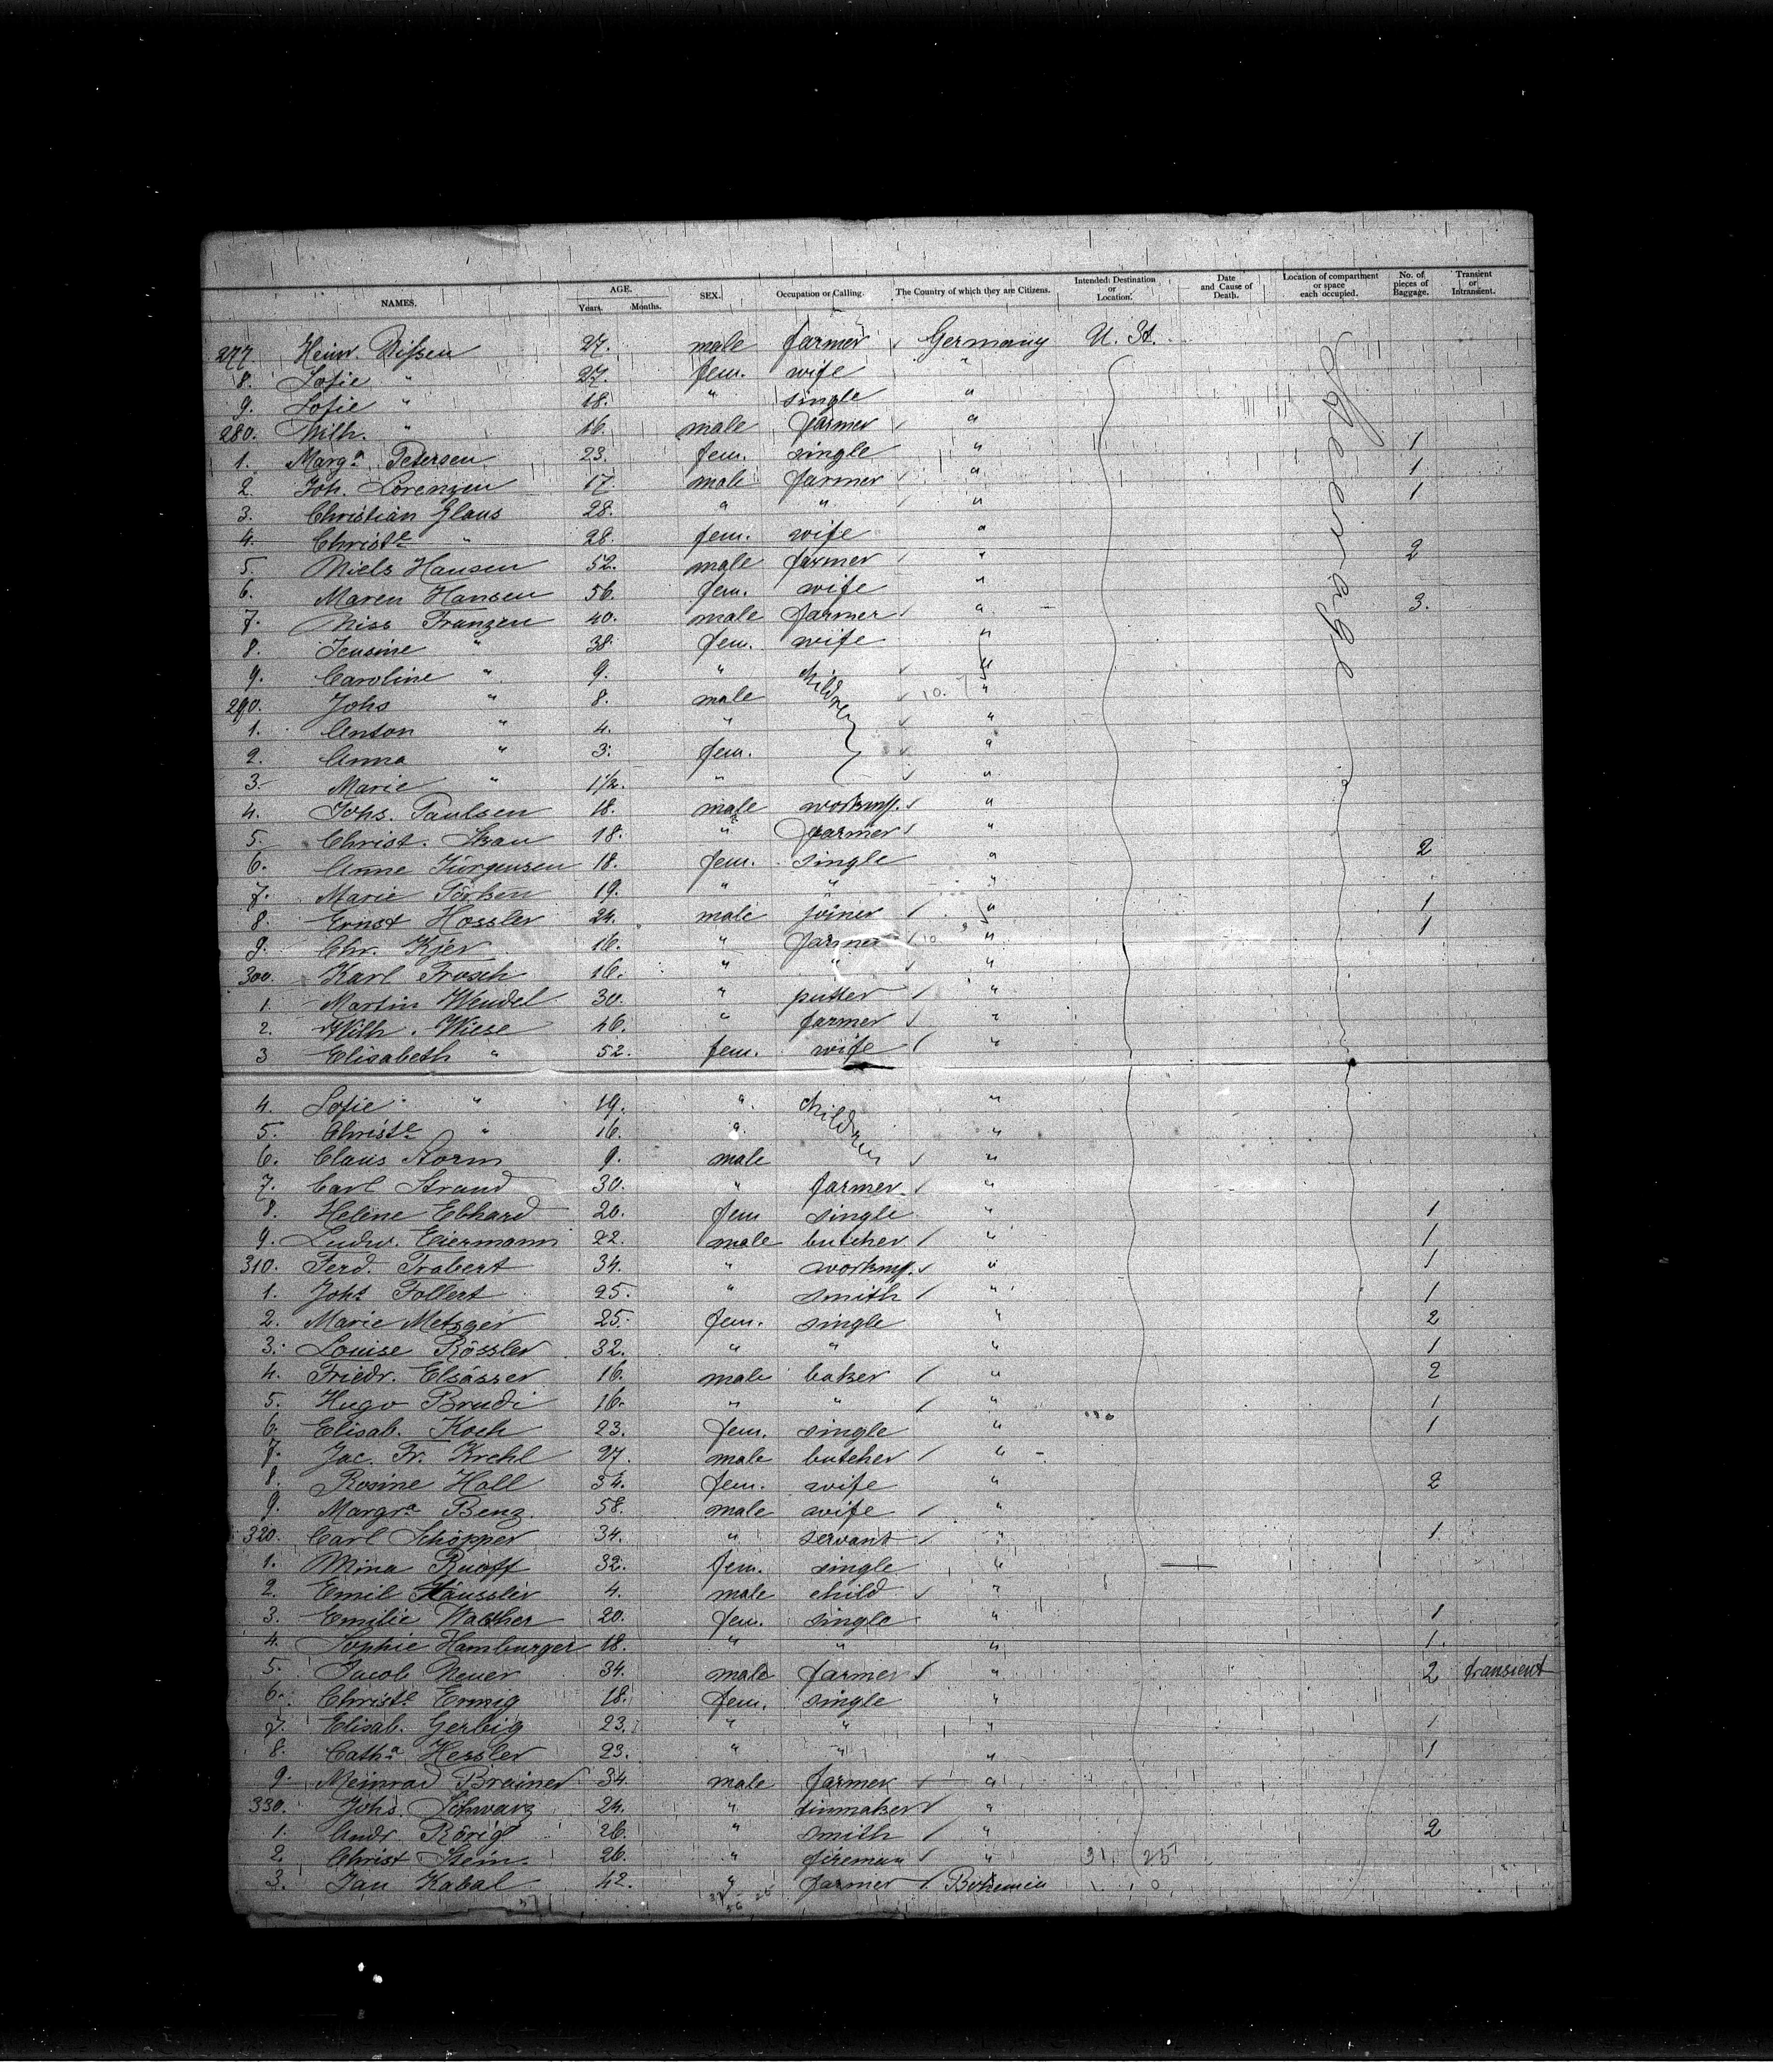 NAMES. AGE. Years. Months. SEX. Occupation or Calling. The Country of which they are Citizens. Intended Destination or Location. Date and Cause of Death. Location of compartment or space each occupied. No. of pieces of Baggage. Transient or Intransient.
277 Heinr. Nissen 27. male farmer Germany U. St. Steerage
8. Sofie " 27. fem. wife "
9. Sofie " 18. " single "
280. Wilh. " 16. male farmer "
1. Marga Petersen 23. fem. single " 1
2. Joh. Lorenzen 17. male farmer " 1
3. Christian Glaus 28. " " " 1
4. Christe " 28. fem. wife "
5. Niels Hansen 52. male farmer " 2
6. Maren Hansen 56. fem. wife "
7. Niss Franzen 40. male farmer " 3.
8. Jensine " 38. fem. wife "
9. Caroline " 9. " children "
290. Johs " 8. male 10. "
1. Anton " 4. " "
2. Anna " 3. fem. "
3. Marie " 1½. " "
4. Johs. Paulsen 18. male workmg. "
5. Christ. Skau 18. " farmer "
6. Anne Jürgensen 18. fem. single " 2
7. Marie 19. " " "
8. Ernst Hossler 24. male joiner " 1
9. Chr. Kjer 16. " farmer 10 " 1
300. Karl Frosch 16. " " "
1. Martin Wendel 30. " putter "
2. Wilh. Wiese 46. " farmer "
3 Elisabeth " 52. fem. wife "
4. Sofie " 19. " children "
5. Christe " 16. " "
6. Claus Storm 9. male "
7. Carl Strand 30. " farmer "
8. Helene Ebhard 20. fem single " 1
9. Ludw. Eiermann 22. male butcher " 1
310. Ferd. Trabert 34. " workmg. " 1
1. Joht Follert 25. " smith " 1
2. Marie Metzger 25. fem. single " 2
3. Louise Rössler 32. " " " 1
4. Friedr. Elsässer 16. male baker " 2
5. Hugo Brudi 16. " " " 1
6. Elisab. Koch 23. fem. single " 1
7. Jac. Fr. Krehl 27. male butcher "
8. Rosine Hall 34. fem. wife " 2
9. Margra Benz 58. male wife "
320. Carl Schöpper 34. " servant " 1
1. Mina Ruoff 32. fem. single "
2. Emil Häussler 4. male child "
3. Emilie Wacher 20. fem. single " 1
4. Sophie Hamburger 18. " " " 1.
5. Jacob Neuer 34. male farmer " 2 transient
6. Christe Ermig 18. fem. single "
7. Elisab. Gerbig 23. " " " 1
8. Catha Hessler 23. " " " 1
9. Meinrad Brainer 34. male farmer "
330. Johs. Schwarz 24. " tinmaker "
1. Andr. Rörig 26. " smith " 2
2. Christ Stein. 26. " fireman " 31. 25
3. Jan Kabal 42. " farmer Bohemia 0